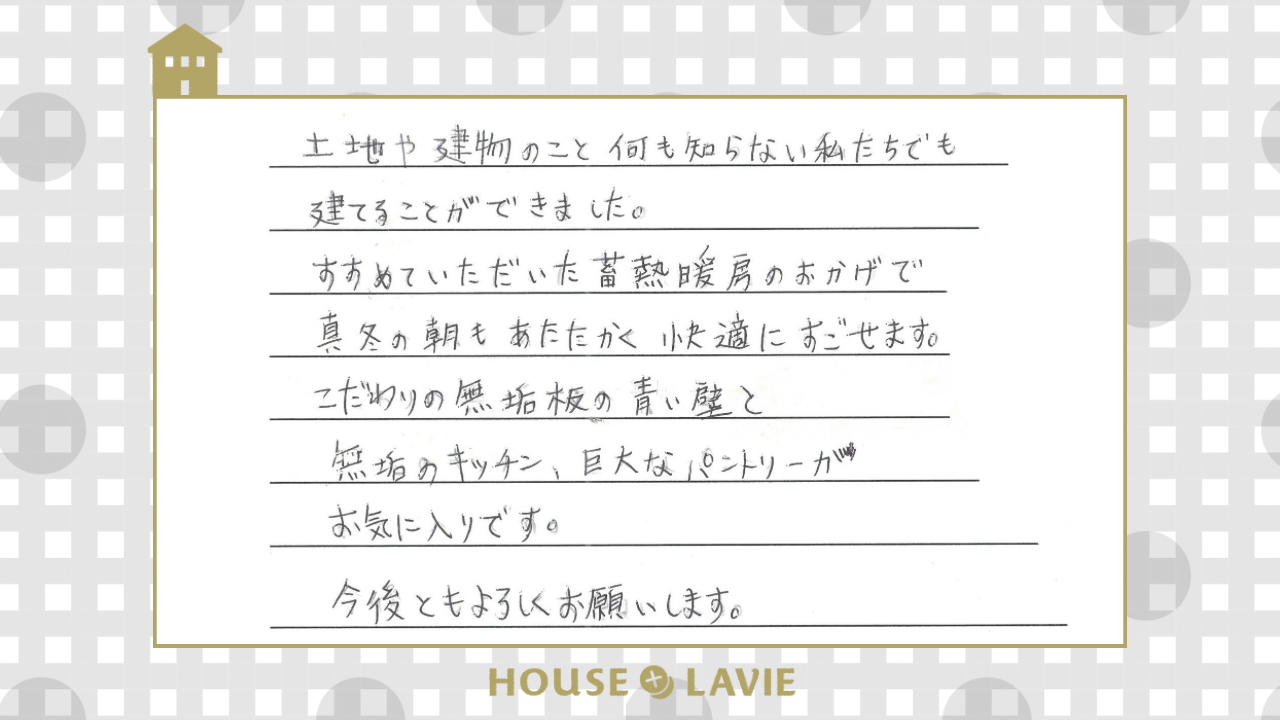 土地や建物のこと何も知らない私たちでも
建てることができました。
すすめていただいた蓄熱暖房のおかげで
真冬の朝もあたたかく快適にすごせます。
こだわりの無垢板の青い壁と
無垢のキッチン、巨大なパントリーが
お気に入りです。
今後ともよろしくお願いします。
HOUSE LAVIE